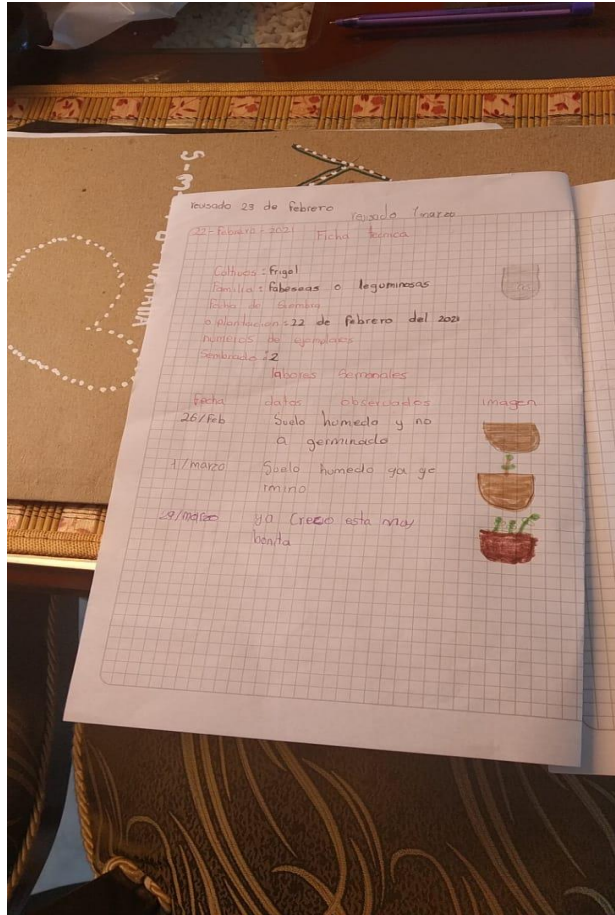 reusado 23 de febrero reusado 1 marzo
22-febrero-2021 Ficha tecnica
Cultivos: frigol
familia: fabaseas o leguminosas
fecha de siembra
o plantacion: 22 de febrero del 2021
numeros de ejemplares
sembrado: 2
labores Semanales
Fecha datos observados imagen
26/feb Suelo humedo y no
a germinado
1/marzo Suelo humedo ya ge
rmino
29/marzo ya Crecio esta muy
bonita